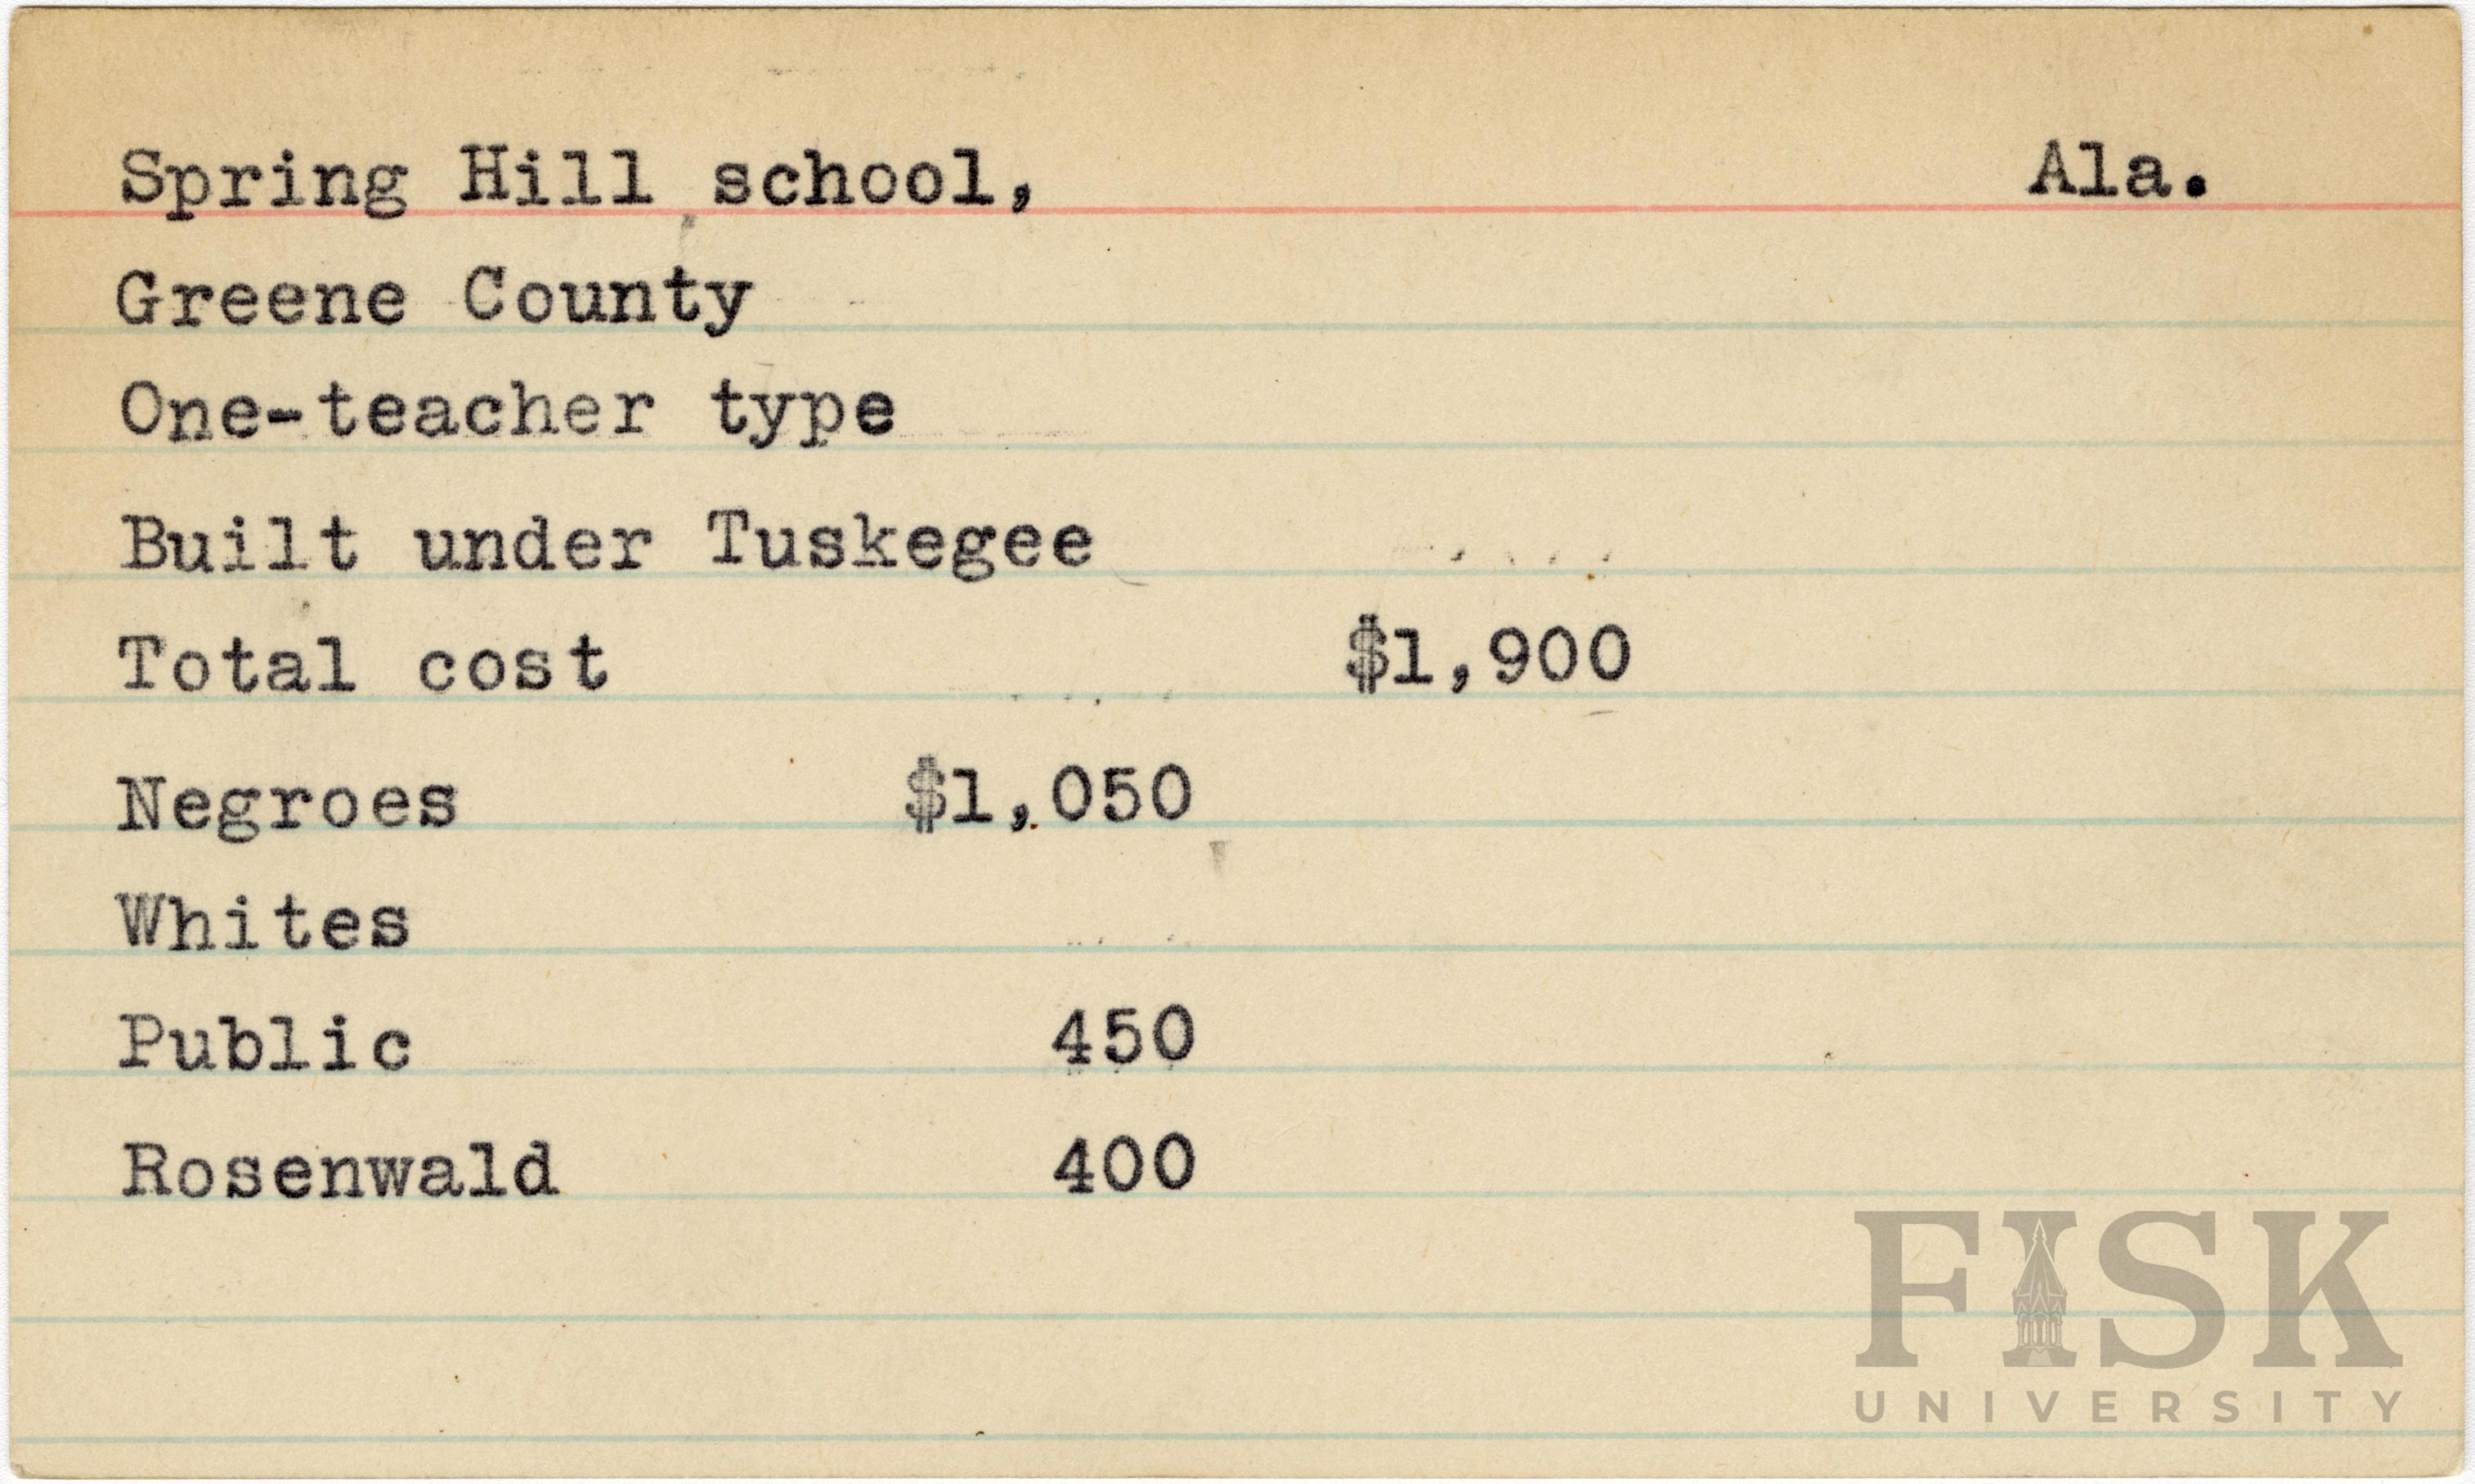 Spring Hill school, Ala.
Greene County
One-teacher type
Built under Tuskegee
Total cost $1,900
Negroes $1,050
Whites
Public 450
Rosenwald 400
FISK
UNIVERSITY